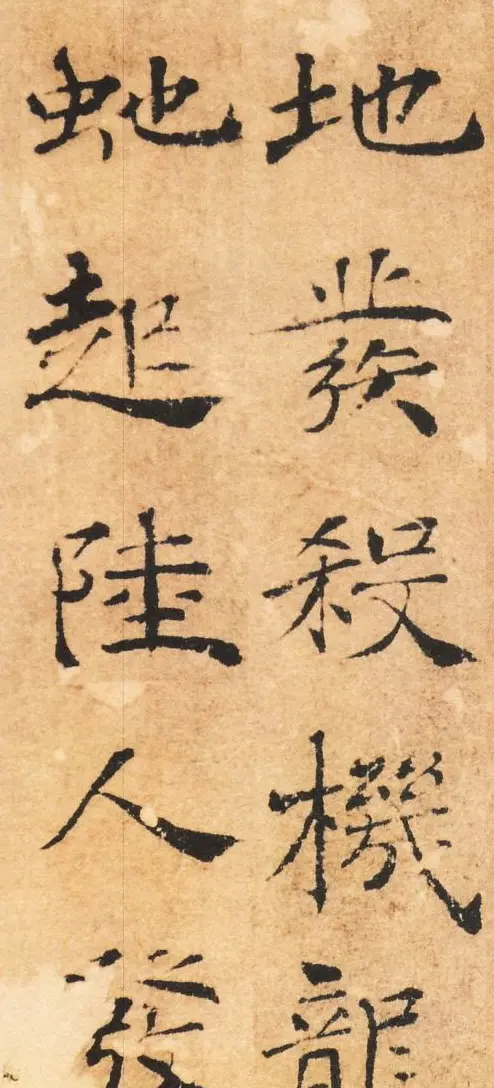 地發殺機龍
虵起陸人發